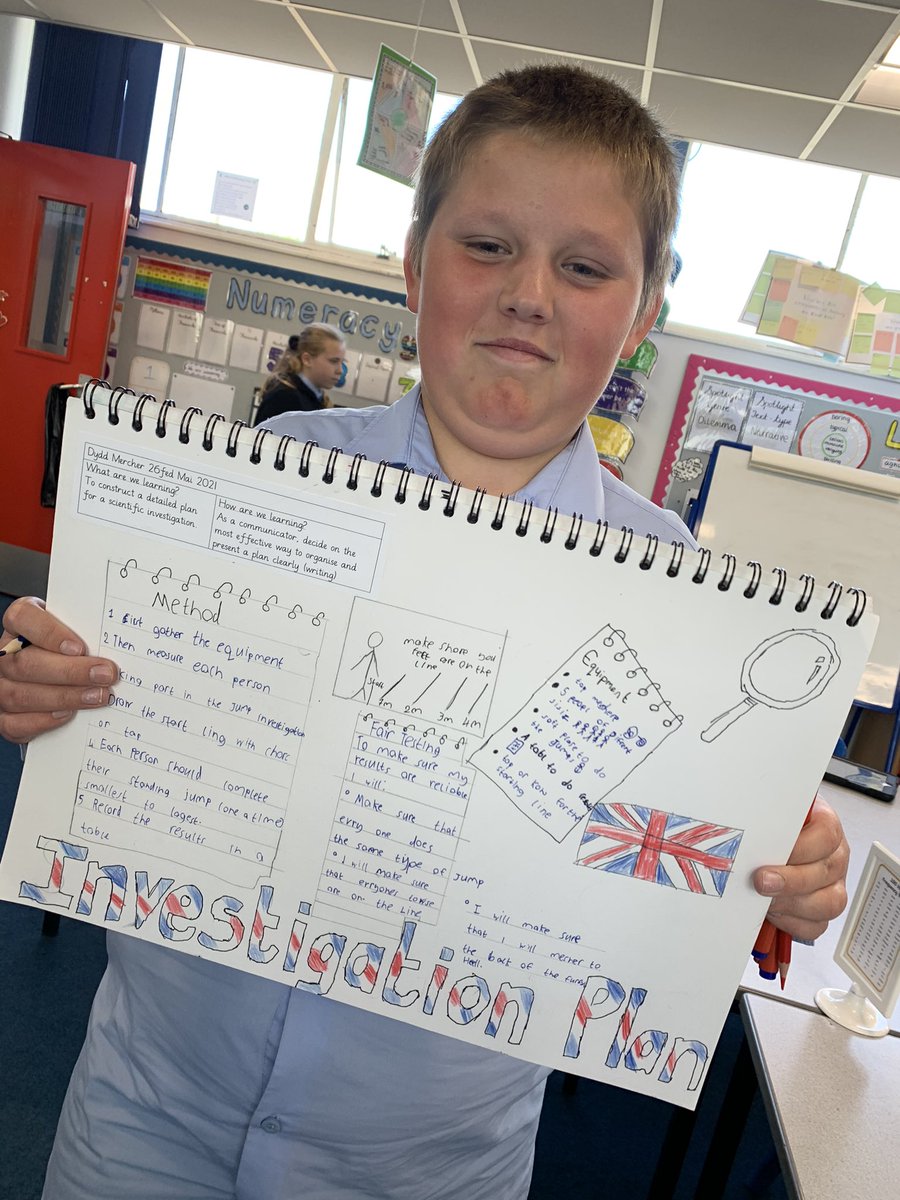 Numeracy
Spotlight
Genre
Dilemma
Spotlight
Text type
Narrative
Dydd Mercher 26fed Mai 2021
What are we learning?
To construct a detailed plan
for a scientific investigation.
How are we learning?
As a communicator, decide on the
most effective way to organise and
present a plan clearly (writing)
Method
1 First gather the equipment
2 Then measure each person
taking part in the jump investigation
Draw the start ling with chorc
or tap
4 Each person should complete
their standing jump (one a time)
smallest to lagest.
5 Record the results in a
table
make shore you
feet are on the
line
Start
1m 2m 3m 4m
Fair testing
To make sure my
results are reliable
I will:
Make sure that
evry one does
the same type of jump
I will make sure
that erryones
are on the line
Equipment
tap meshere
5 people of different
sizis
soft place to do
the jumps
A tabl to do
tap or for the
starting line
I will make sure
that I will mesher to
the back of the
Heell.
Investigation Plan